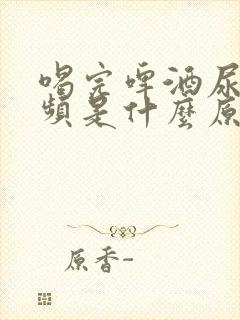 喝完啤酒尿
頻是什麼原
原香-